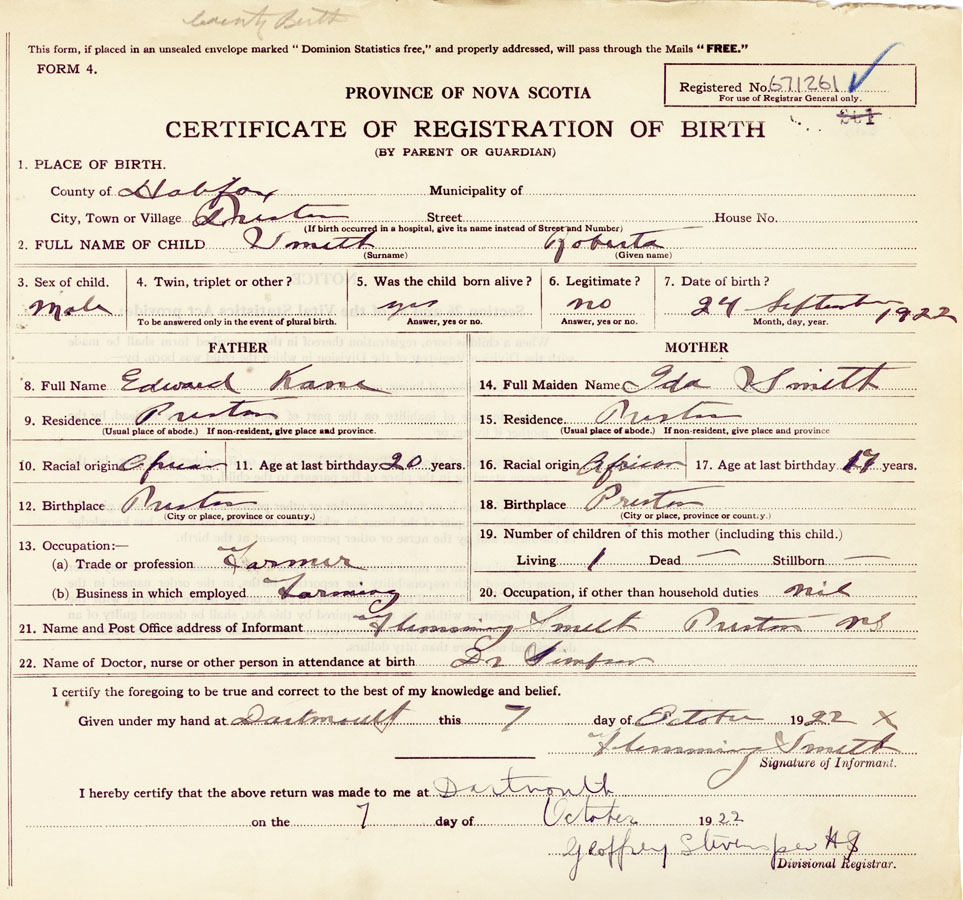 County Birth
This form, if placed in an unsealed envelope marked "Dominion Statistics free," and properly addressed, will pass through the Mails "FREE."
FORM 4.
Registered No. 671261
For use of Registrar General only.
PROVINCE OF NOVA SCOTIA
CERTIFICATE OF REGISTRATION OF BIRTH
(BY PARENT OR GUARDIAN)
1. PLACE OF BIRTH.
County of Halifax Municipality of
City, Town or Village Preston Street House No.
(If birth occurred in a hospital, give its name instead of Street and Number)
2. FULL NAME OF CHILD Smith Roberts
(Surname) (Given name)
3. Sex of child. 4. Twin, triplet or other? 5. Was the child born alive? 6. Legitimate? 7. Date of birth?
Male yes no 24 September 1922
To be answered only in the event of plural birth. Answer, yes or no. Answer, yes or no. Month, day, year.
FATHER MOTHER
8. Full Name Edward Kane 14. Full Maiden Name Ida Smith
9. Residence Preston 15. Residence Preston
(Usual place of abode.) If non-resident, give place and province. (Usual place of abode.) If non-resident, give place and province
10. Racial origin African 11. Age at last birthday 20 years. 16. Racial origin African 17. Age at last birthday 17 years.
12. Birthplace Preston 18. Birthplace Preston
(City or place, province or country.) (City or place, province or country.)
13. Occupation:— 19. Number of children of this mother (including this child.)
(a) Trade or profession Farmer Living 1 Dead — Stillborn —
(b) Business in which employed Farming 20. Occupation, if other than household duties nil
21. Name and Post Office address of Informant Flemming Smith Preston NS
22. Name of Doctor, nurse or other person in attendance at birth Dr Simpson
I certify the foregoing to be true and correct to the best of my knowledge and belief.
Given under my hand at Dartmouth this 7 day of October 1922 X
Flemming Smith
Signature of Informant.
I hereby certify that the above return was made to me at Dartmouth
on the 7 day of October 1922
Geoffrey Stevens per HS
Divisional Registrar.